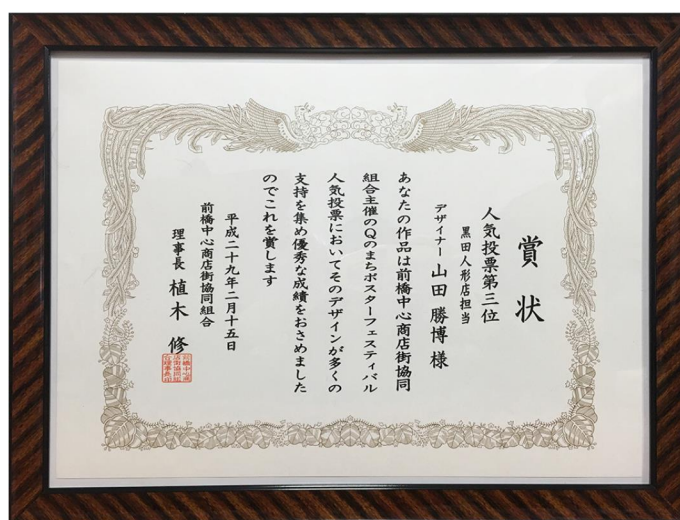 賞状
人気投票第三位
黒田人形店担当
デザイナー 山田 勝博 様
あなたの作品は前橋中心商店街協同
組合主催のQのまちポスターフェスティバル
人気投票においてそのデザインが多くの
支持を集め優秀な成績をおさめました
のでこれを賞します
平成二十九年二月十五日
前橋中心商店街協同組合
理事長 植木 修